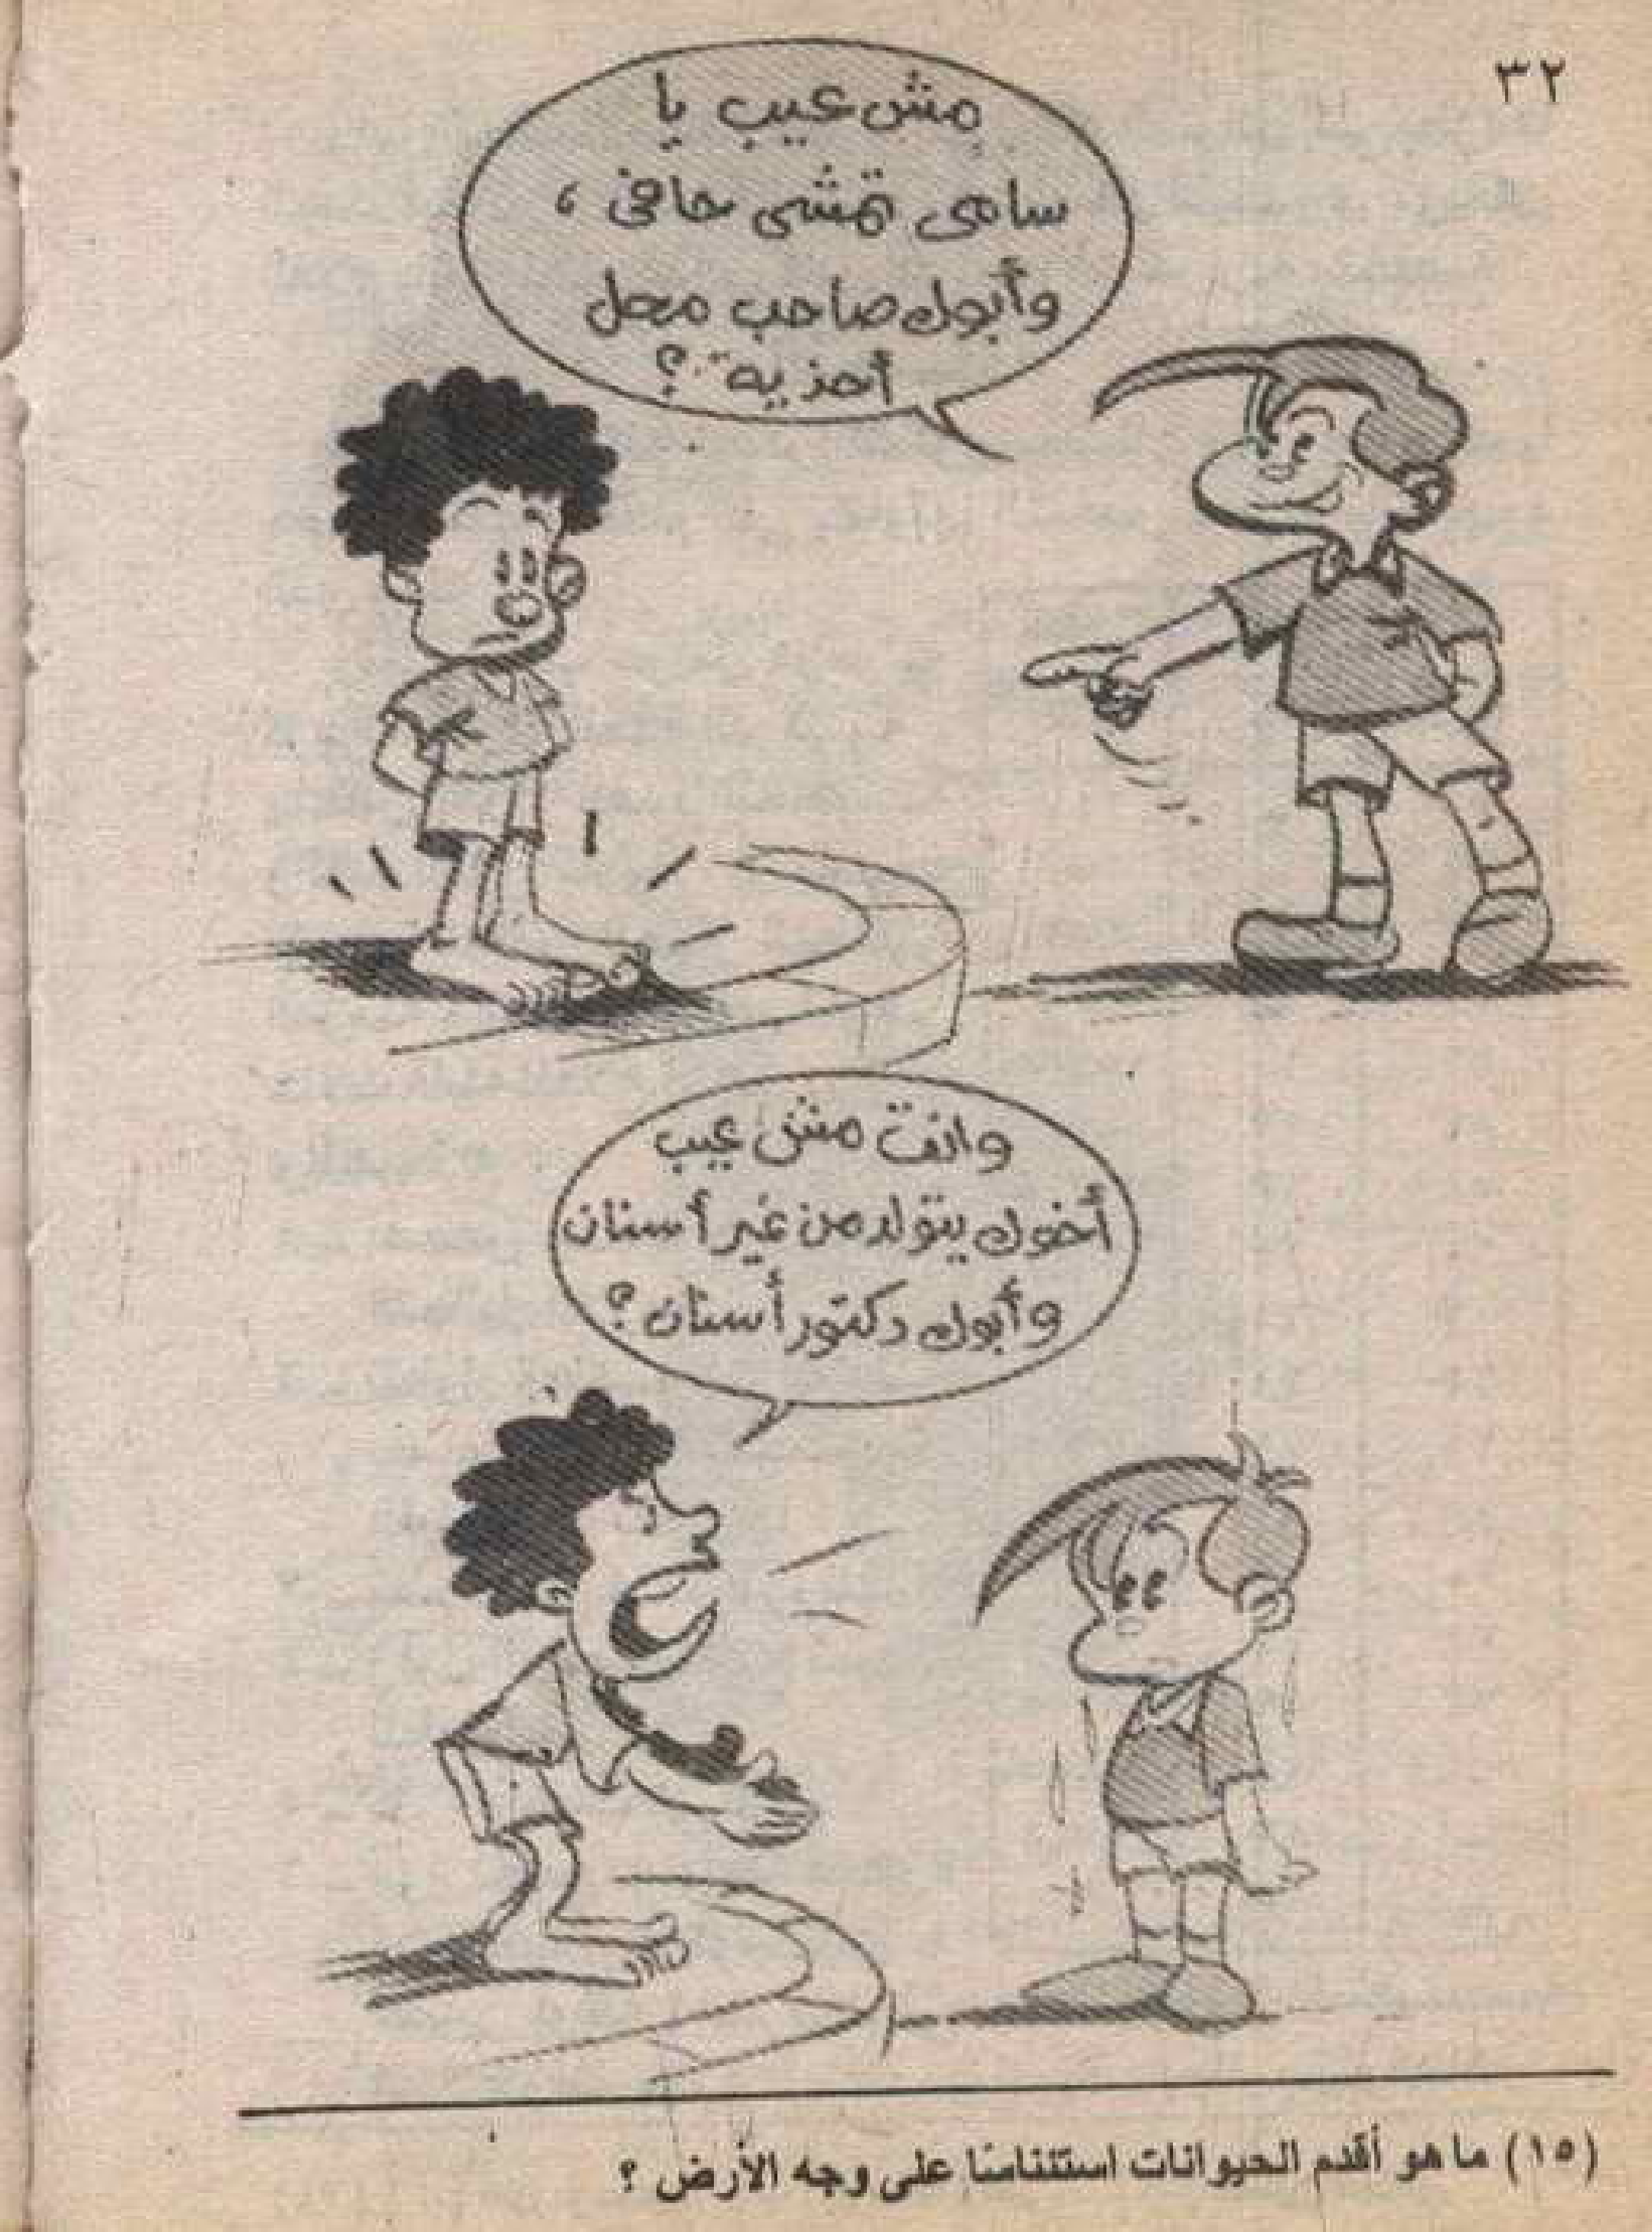 ٣٢
مش عيب يا
سامى تمشى حافى ،
وأبوك صاحب محل
أحذية ؟
وانت مش عيب
أخوك يتولد من غير أسنان
وأبوك دكتور أسنان ؟
(١٥) ما هو أقدم الحيوانات استئناسًا على وجه الأرض ؟